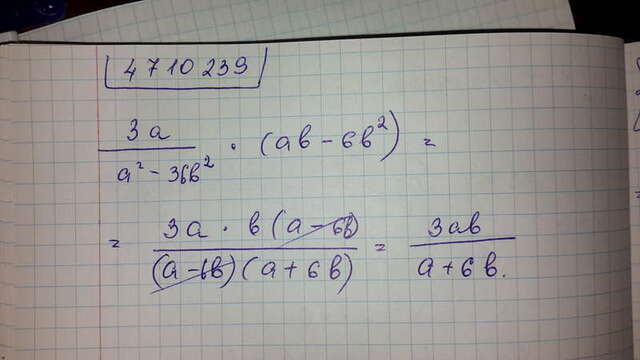 4710239
3a / (a² - 36b²) · (ab - 6b²) =
= 3a · b(a - 6b) / (a - 6b)(a + 6b) = 3ab / a + 6b.